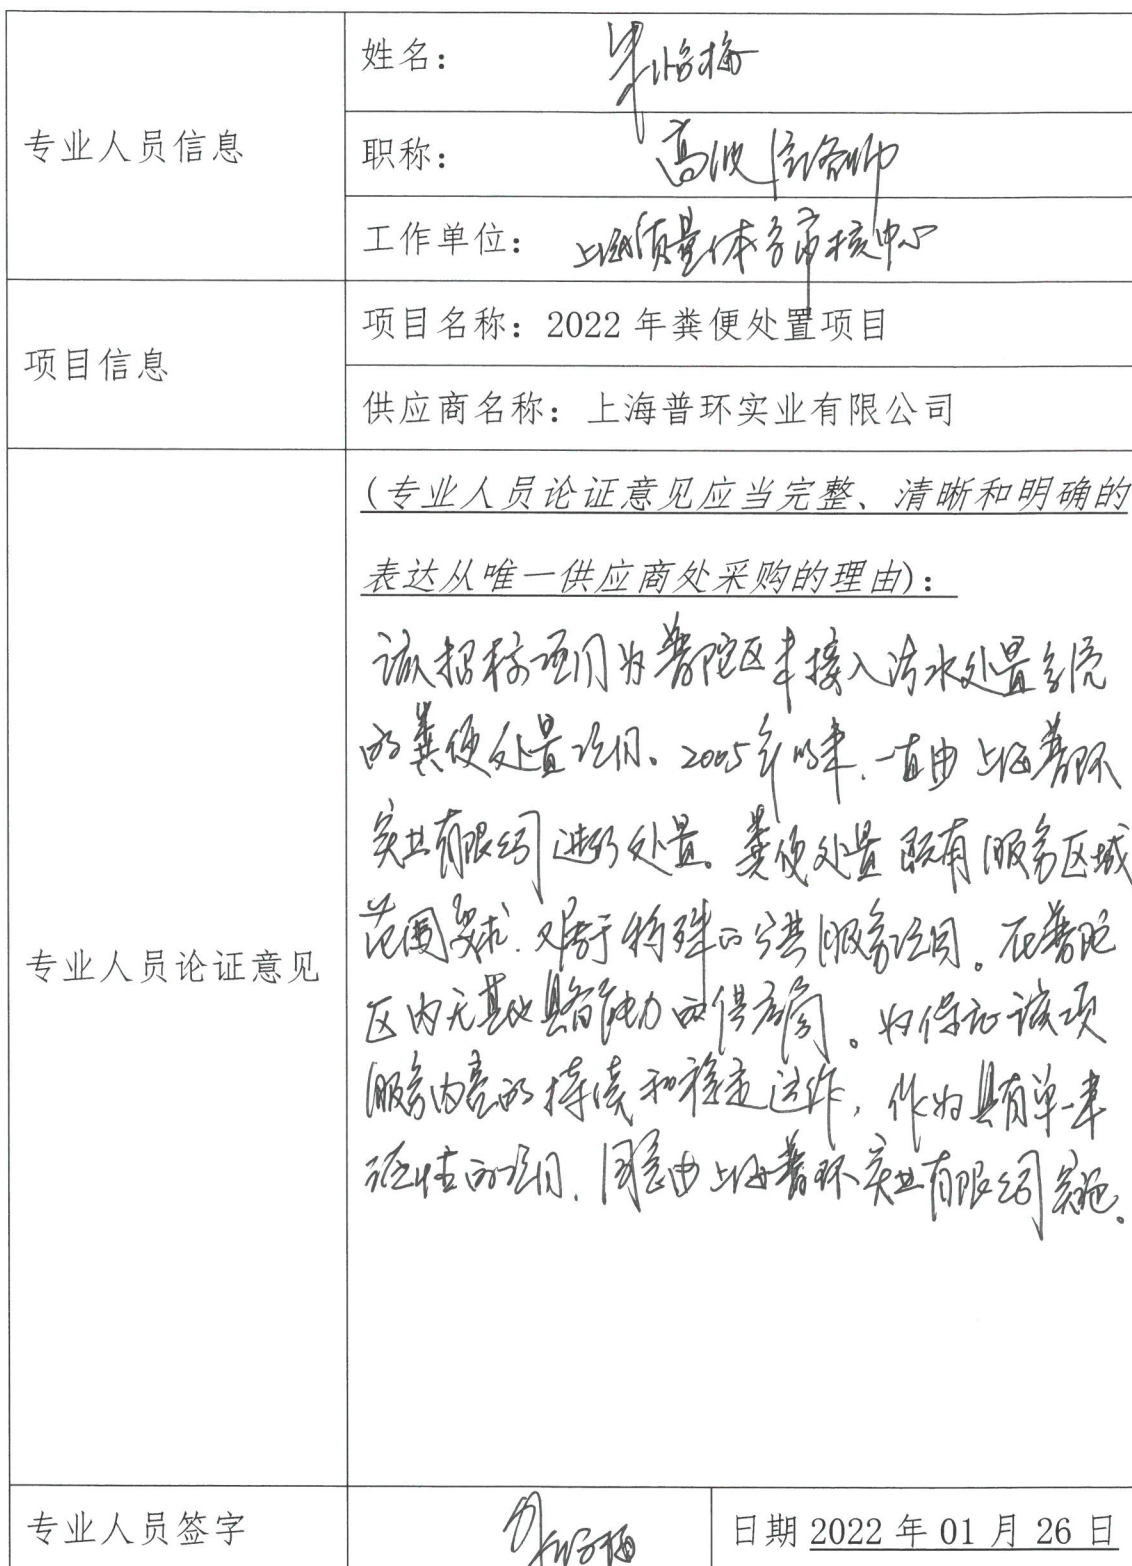 姓名：
专业人员信息
职称：高级经济师
工作单位：上海质量体系审核中心
项目信息
项目名称：2022 年粪便处置项目
供应商名称：上海普环实业有限公司
(专业人员论证意见应当完整、清晰和明确的
表达从唯一供应商处采购的理由)：
该招标项目为普陀区未接入污水处置系统
的粪便处置项目。2005年以来，一直由上海普环
实业有限公司进行处置。粪便处置既有服务区域
范围要求，又属于特殊的公共服务项目。在普陀
区内无其他具备能力的供应商。为保证该项
服务内容的持续和稳定运作，作为具有单一来
源性的项目，同意由上海普环实业有限公司实施。
专业人员论证意见
专业人员签字
日期 2022 年 01 月 26 日